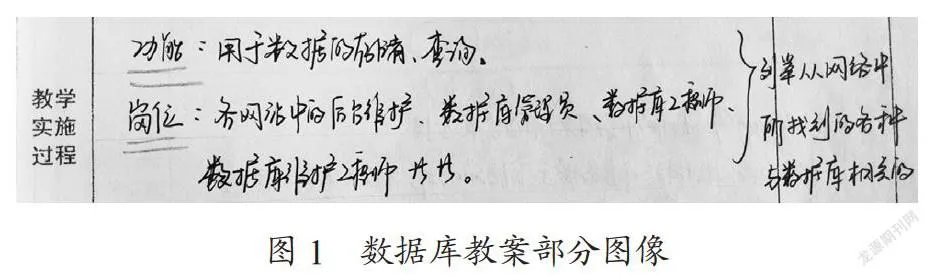 教学
实施
过程
功能：用于数据的存储、查询。
岗位：各网站中的后台维护、数据库管理员、数据库工程师、
数据库维护工程师 等等。
列举从网络中
所找到的各种
与数据库相关的
图1 数据库教案部分图像
龙源期刊网